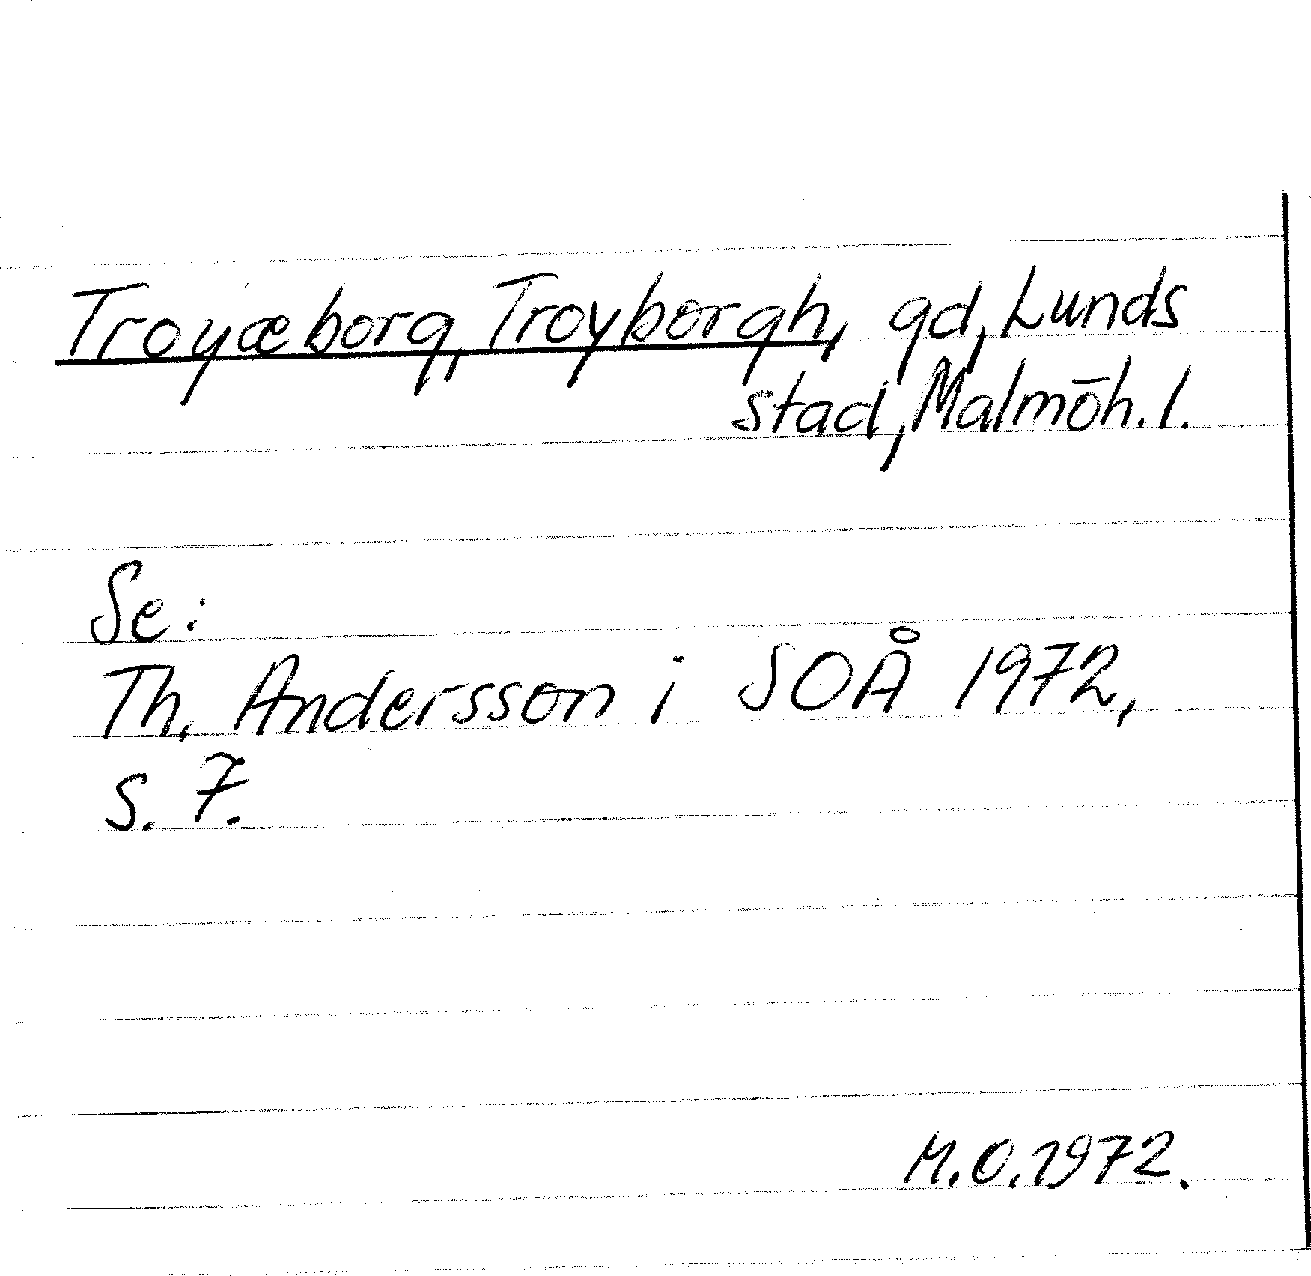 Troyæborg, Troyborgh, gd, Lunds
stad, Malmöh. l.
Se:
Th. Andersson i SOÅ 1972,
s. 7.
M.O. 1972.